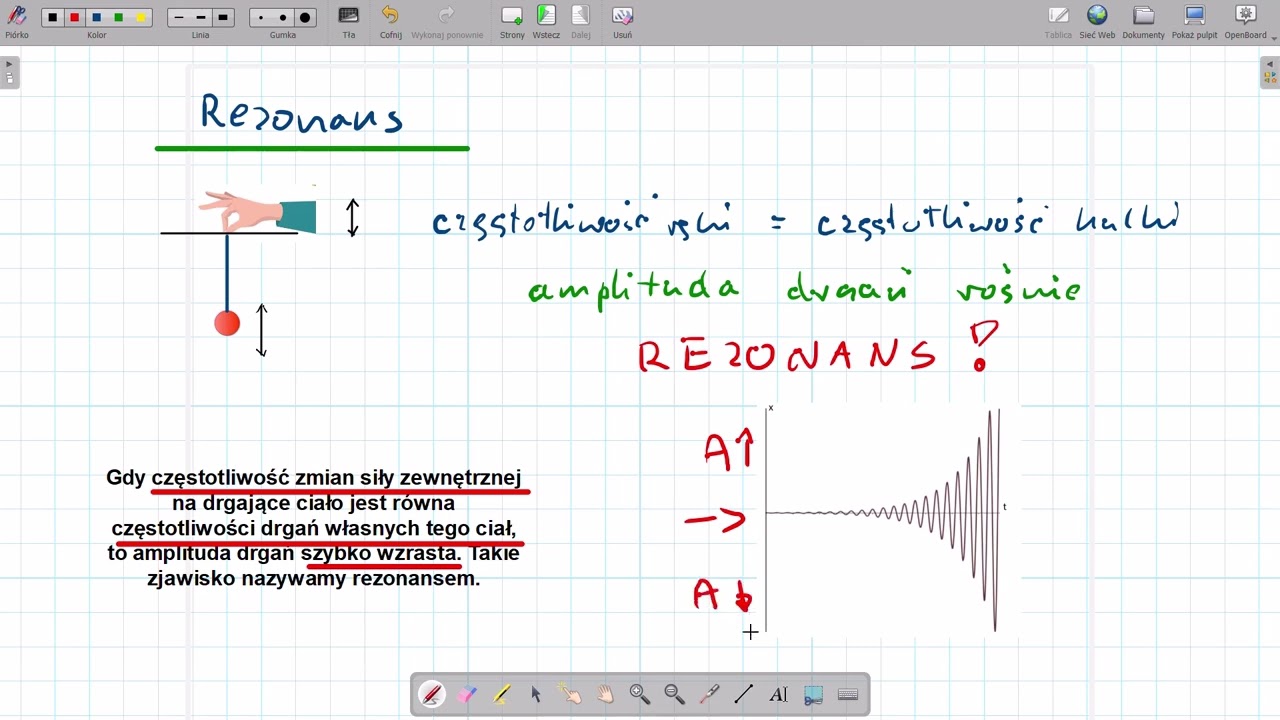 Piórko
Kolor
Linia
Gumka
Tła
Cofnij
Wykonaj ponownie
Strony
Wstecz
Dalej
Usuń
Tablica
Sieć Web
Dokumenty
Pokaż pulpit
OpenBoard
Rezonans
częstotliwość ręki = częstotliwość kulki
amplituda drgań rośnie
REZONANS !
Gdy częstotliwość zmian siły zewnętrznej
na drgające ciało jest równa
częstotliwości drgań własnych tego ciał,
to amplituda drgań szybko wzrasta. Takie
zjawisko nazywamy rezonansem.
x
A↑
→
t
A↓
AI